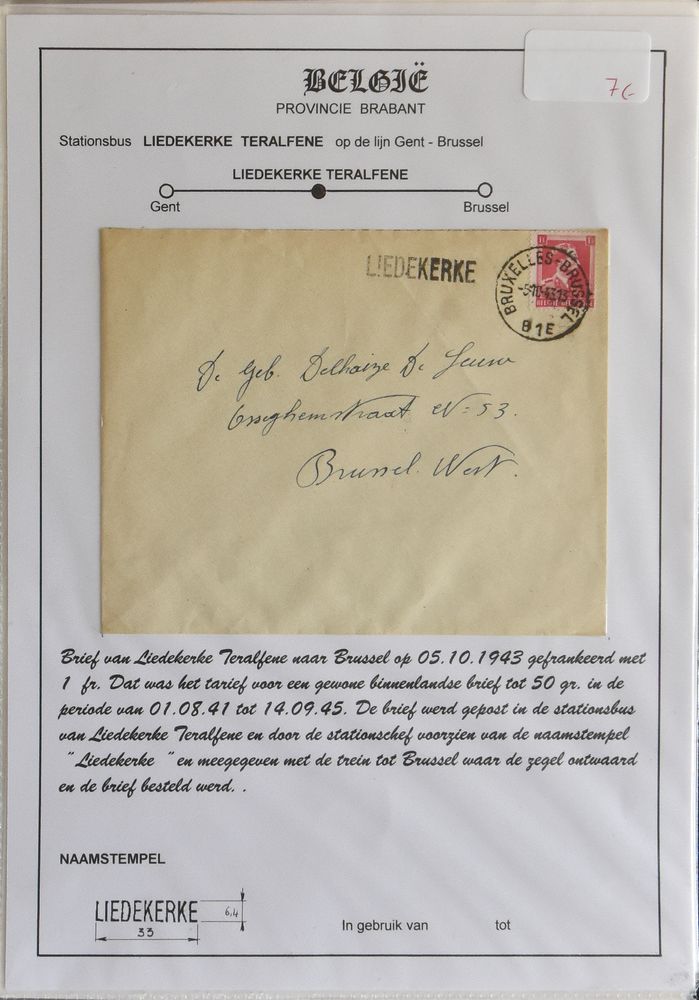 BELGIË
7,-
PROVINCIE BRABANT
Stationsbus LIEDEKERKE TERALFENE op de lijn Gent - Brussel
LIEDEKERKE TERALFENE
Gent Brussel
LIEDEKERKE
BRUXELLES-BRUSSEL
B1E
De Geb. Delhaize De Leeuw
Osseghemstraat N= 53.
Brussel. West.
Brief van Liedekerke Teralfene naar Brussel op 05.10.1943 gefrankeerd met
1 fr. Dat was het tarief voor een gewone binnenlandse brief tot 50 gr. in de
periode van 01.08.41 tot 14.09.45. De brief werd gepost in de stationsbus
van Liedekerke Teralfene en door de stationschef voorzien van de naamstempel
"Liedekerke " en meegegeven met de trein tot Brussel waar de zegel ontwaard
en de brief besteld werd. .
NAAMSTEMPEL
LIEDEKERKE 6,4
33
In gebruik van tot